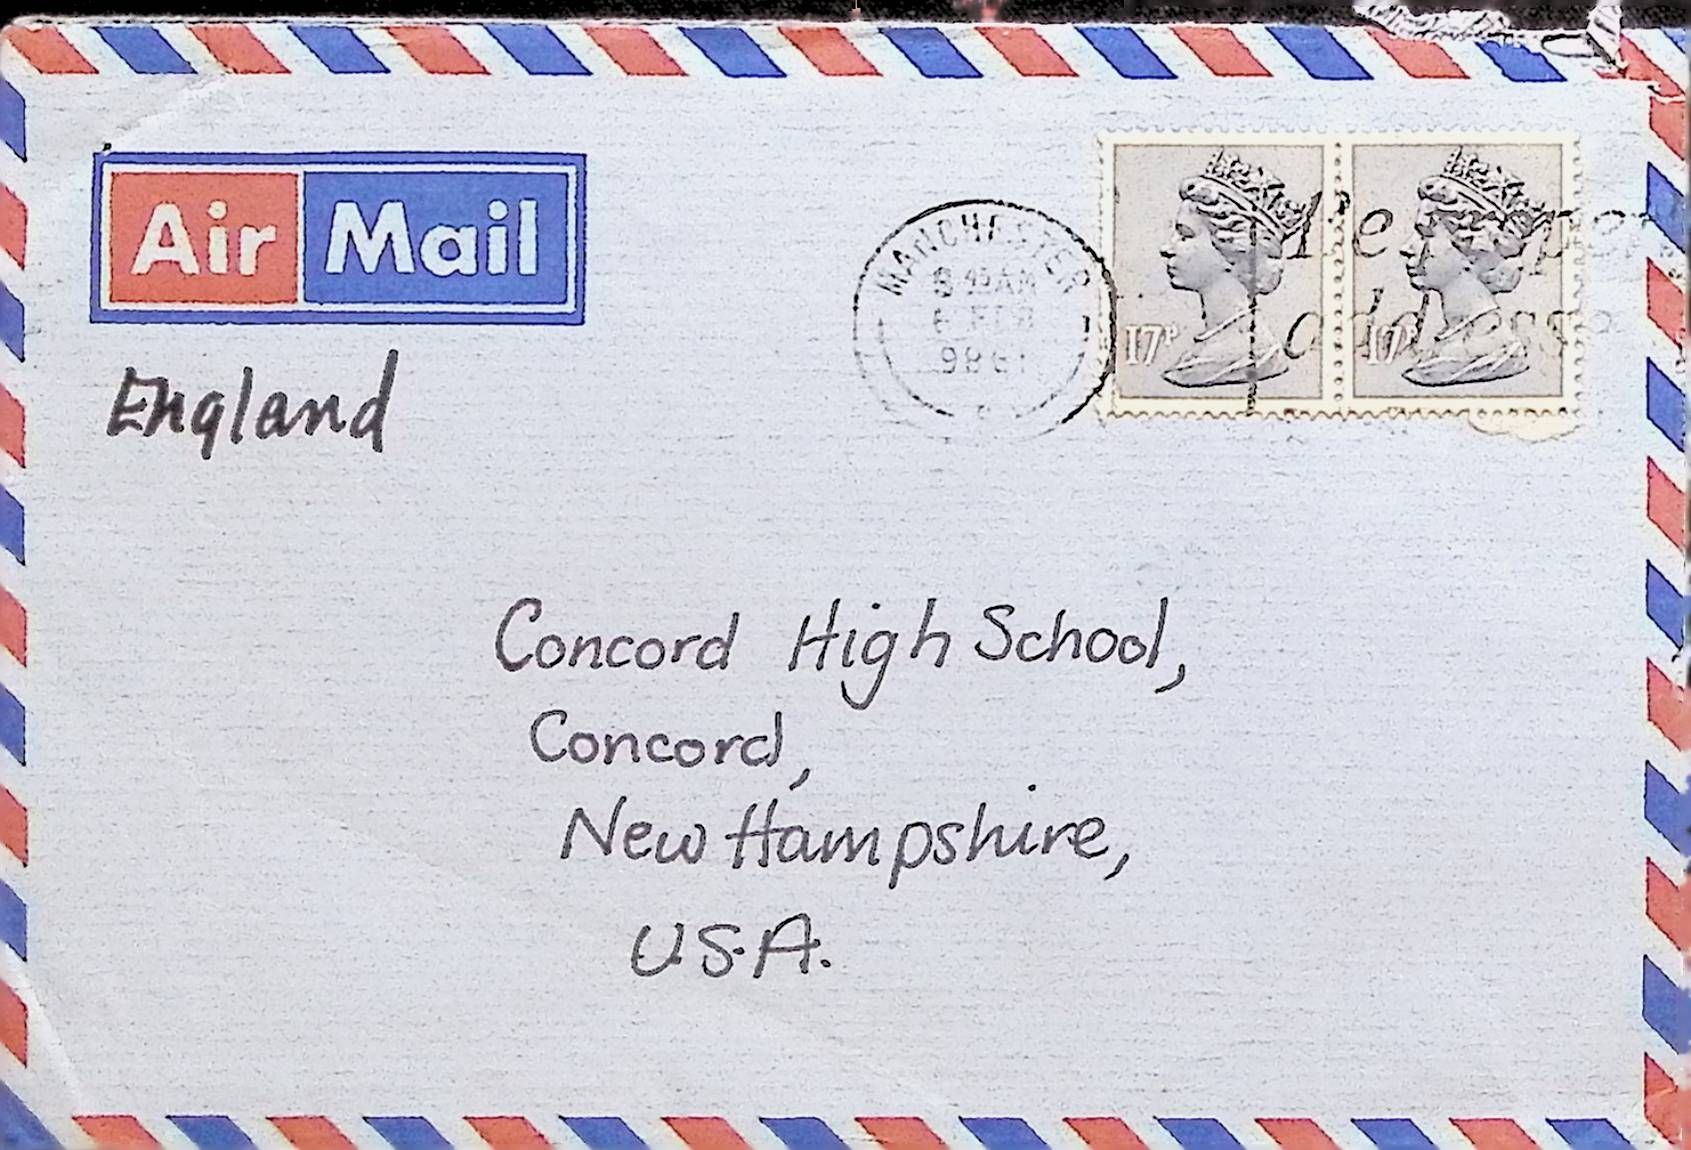 Air Mail
England
MANCHESTER
6 FEB
1986
17P 17P
address
Concord High School,
Concord,
New Hampshire,
U.S.A.